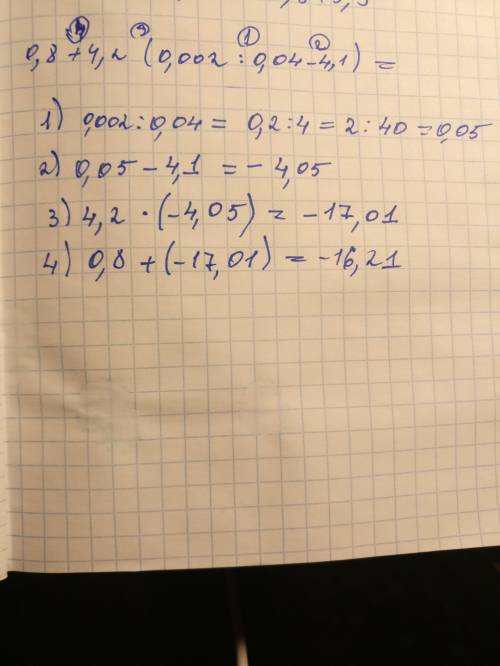 4 3 1 2
0,8 + 4,2 (0,002 : 0,04 - 4,1) =
1) 0,002 : 0,04 = 0,2 : 4 = 2 : 40 = 0,05
2) 0,05 - 4,1 = - 4,05
3) 4,2 · (-4,05) = -17,01
4) 0,8 + (-17,01) = -16,21